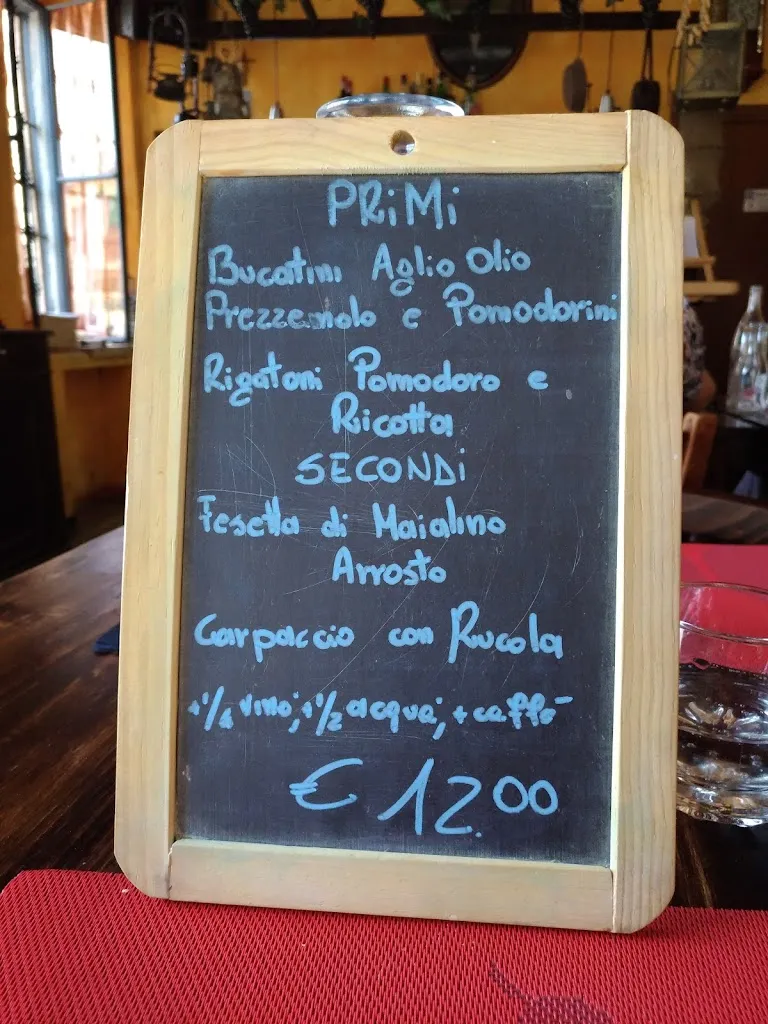 PRiMi
Bucatini Aglio Olio
Prezzemolo e Pomodorini
Rigatoni Pomodoro e
Ricotta
SECONDi
Fesetta di Maialino
Arrosto
Carpaccio con Rucola
+1/4 vino, +1/2 acqua, + caffè
€ 12.00